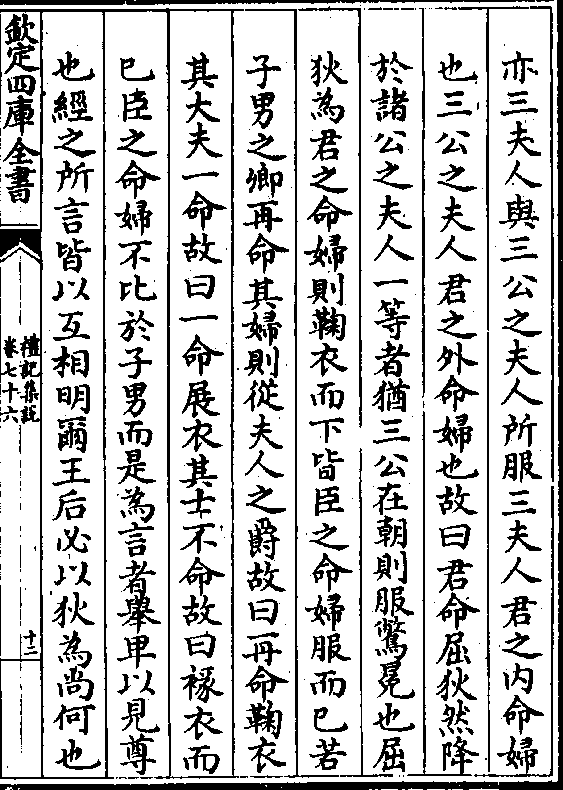 亦三夫人與三公之夫人所服三夫人君之内命婦
也三公之夫人君之外命婦也故曰君命屈狄然降
於諸公之夫人一等者猶三公在朝則服鷩冕也屈
狄為君之命婦則鞠衣而下皆臣之命婦服而已若
子男之卿再命其婦則從夫人之爵故曰再命鞠衣
其大夫一命故曰一命展衣其士不命故曰褖衣而
已臣之命婦不比於子男而是為言者舉卑以見尊
也經之所言皆以互相明爾王后必以狄為尚何也
欽定四庫全書
禮記集說
卷七十六
十二